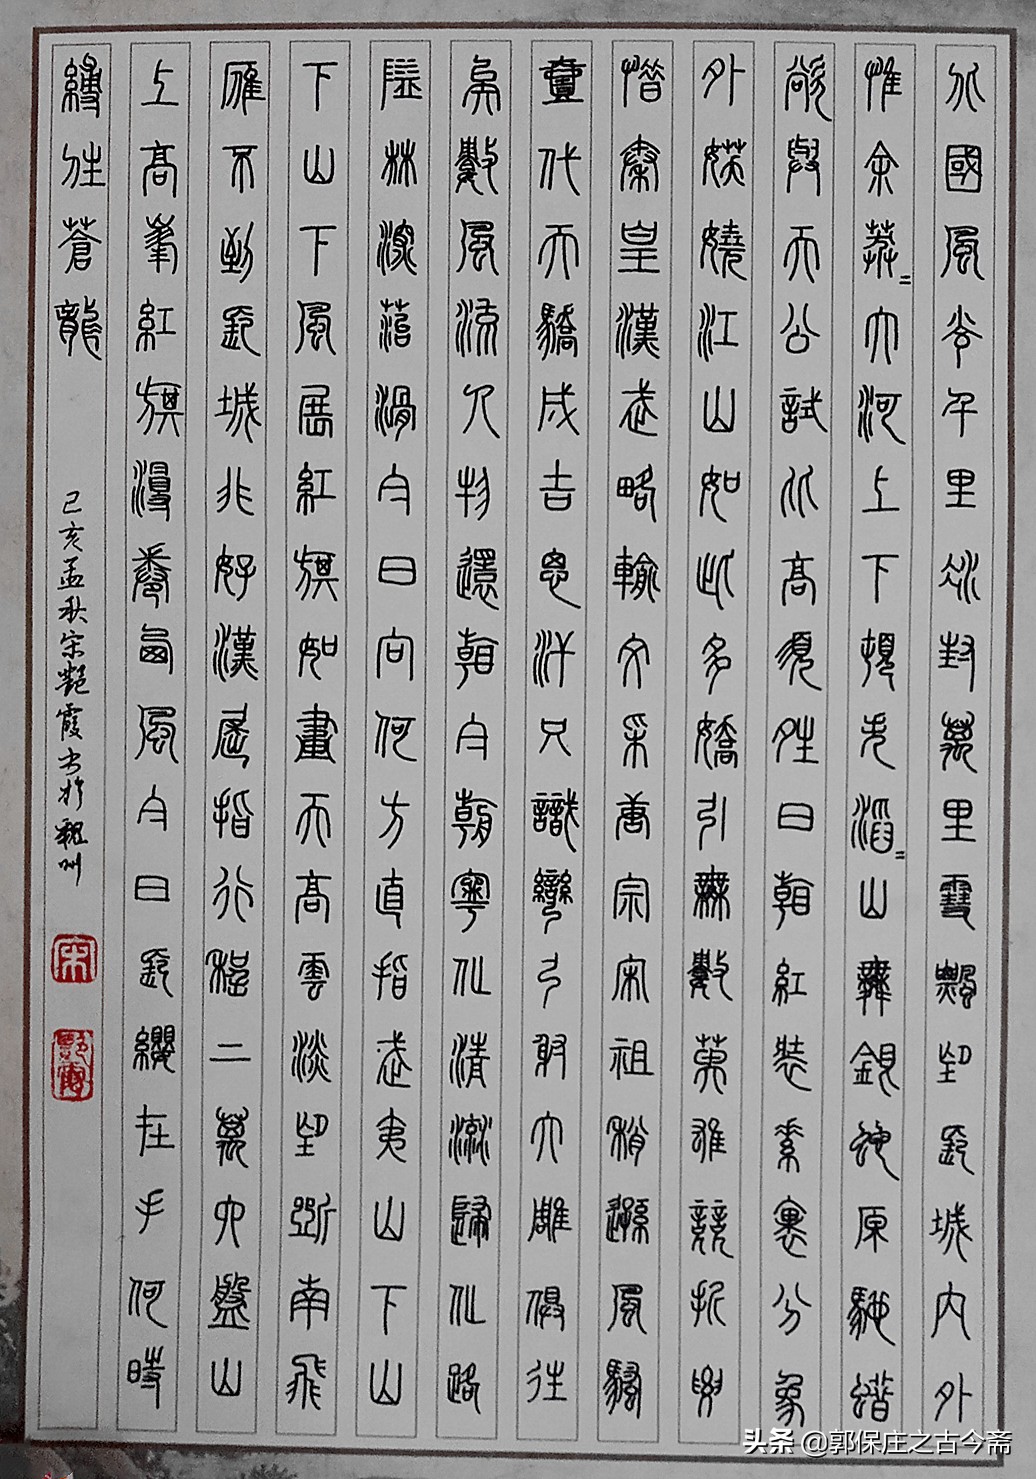 北國風光千里冰封萬里雪飄望長城內外
惟余莽=大河上下頓失滔=山舞銀蛇原馳蠟
欲與天公試比高須晴日看紅裝素裹分象
外妖嬈江山如此多嬌引無數英雄競折腰
惜秦皇漢武略輸文采唐宗宋祖稍遜風騷
壹代天驕成吉思汗只識彎弓射大雕俱往
矣數風流人物還看今朝寧化清流歸化路
隘林深苔滑今日向何方直指武夷山下山
下山下風展紅旗如畫天高雲淡望斷南飛
雁不到長城非好漢屈指行程二萬六盤山
上高峰紅旗漫卷西風今日長纓在手何時
縛住蒼龍
己亥孟秋宋艷霞書於魏州
宋
艷霞
头条 @郭保庄之古今斋